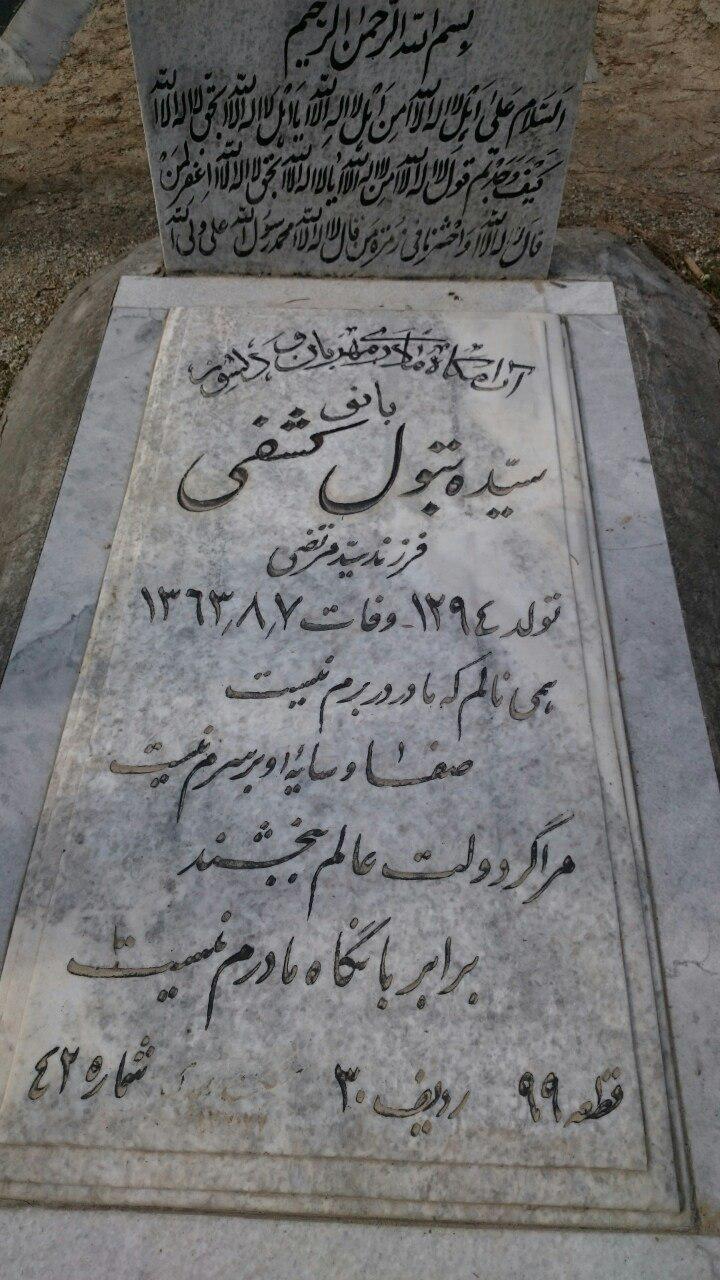 بسم الله الرحمن الرحیم
السلام علی اهل لا اله الا الله من اهل لا اله الا الله یا اهل لا اله الا الله بحق لا اله الا الله
کیف وجدتم قول لا اله الا الله من لا اله الا الله یا لا اله الا الله بحق لا اله الا الله اغفر لمن
قال لا اله الا الله واحشرنا فی زمرة من قال لا اله الا الله محمد رسول الله علی ولی الله
آرامگاه مادری مهربان و دلسوز
بانو
سیّده بتول کشفی
فرزند سیّد مرتضی
تولد ۱۲۹٤ - وفات ۱۳٦۳٫۸٫۷
همی نالم که مادر در برم نیست
صفا و سایهٔ او بر سرم نیست
مرا گر دولت عالم ببخشند
برابر با نگاه مادرم نیست
قطعه ۹۹ ردیف ۳۰ شماره ٤۲